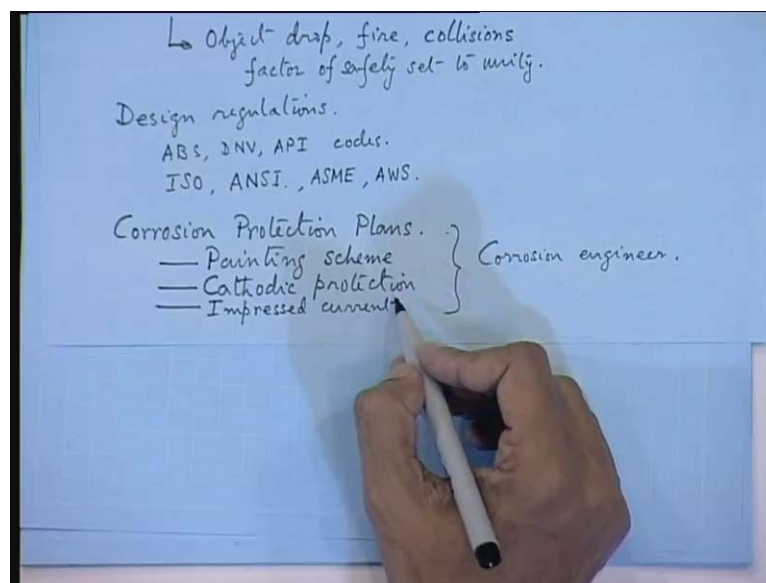 ↳ Object drop, fire, collisions
factor of safety set to unity.
Design regulations.
ABS, DNV, API codes.
ISO, ANSI., ASME, AWS.
Corrosion Protection Plans.
— Painting scheme
— Cathodic protection
— Impressed current
} Corrosion engineer.